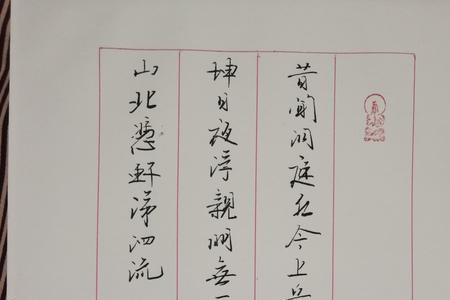 昔聞洞庭水今上岳
坤日夜浮親朋無一
山北憑軒涕泗流